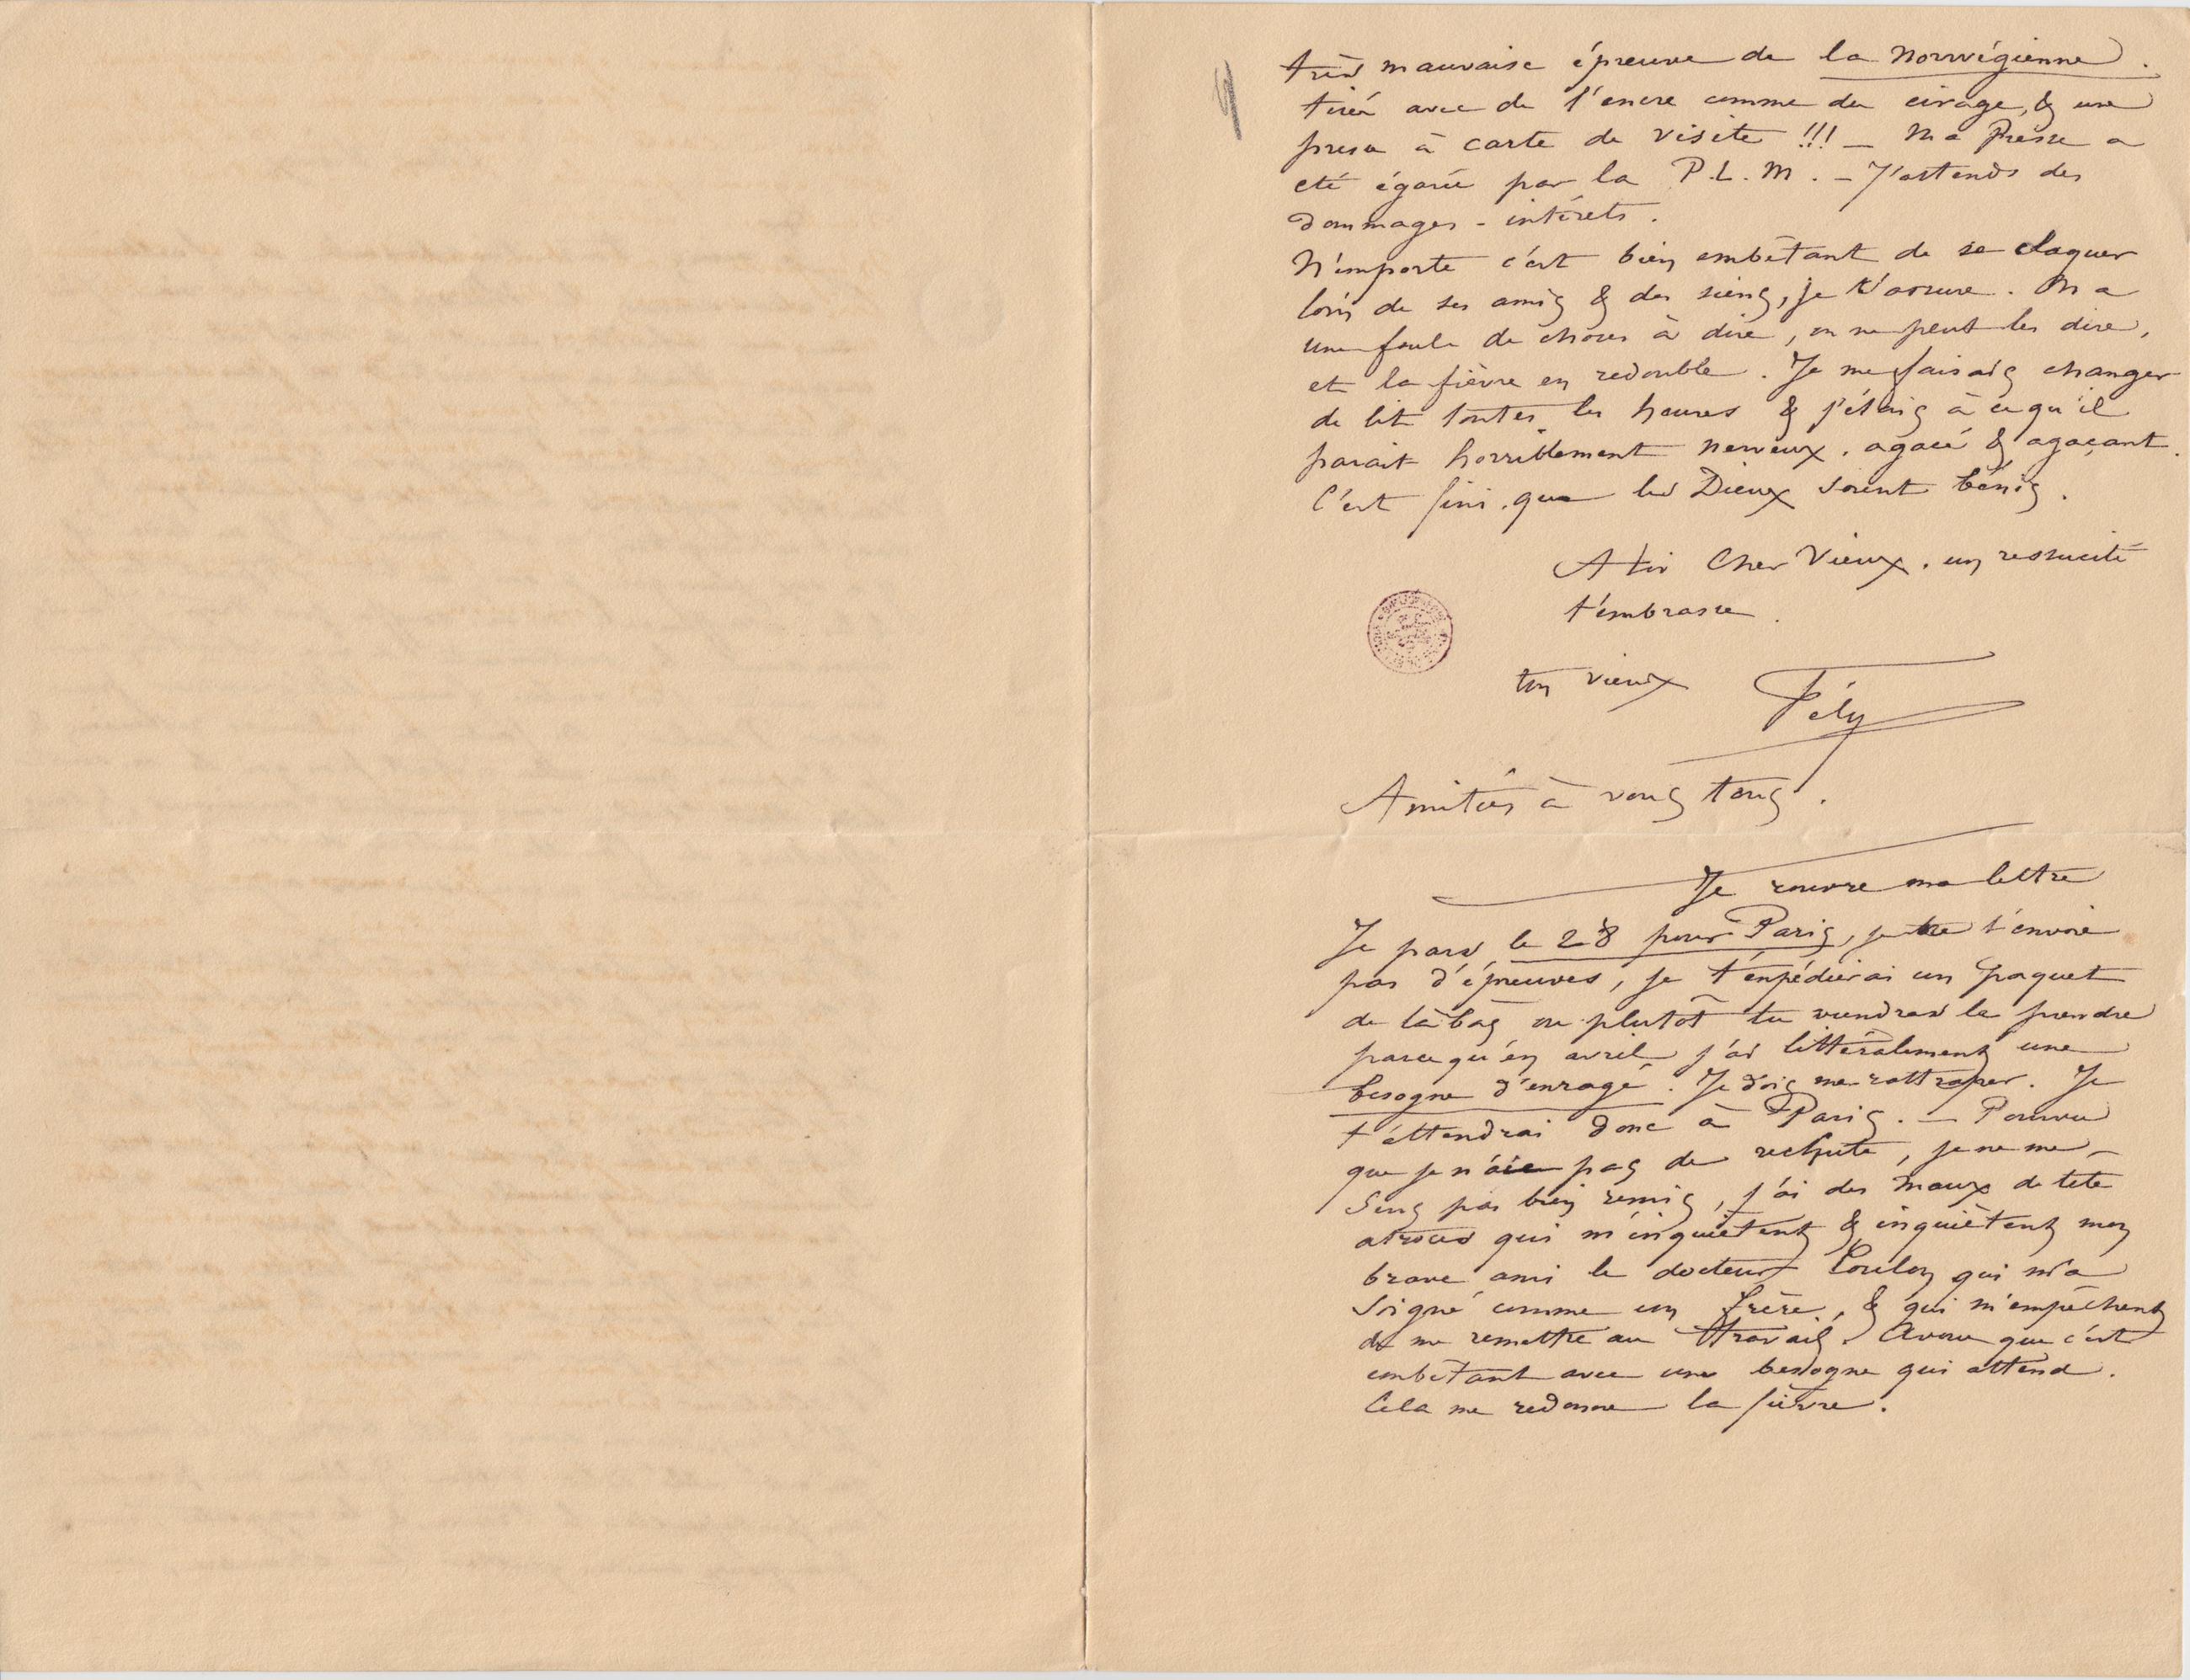 très mauvaise épreuve de la Norwégienne.
tirée avec de l'encre comme du cirage, & une
presse à carte de visite !!! — Ma Presse a
eté égarée par la P.L.M. — J'attends des
dommages-intérets.
N'importe c'est bien embêtant de se claquer
loin de ses amis & des siens, je t'assure. On a
une foule de choses à dire, on ne peut les dire,
et la fièvre en redouble. Je me faisais changer
de lit toutes les heures & j'étais à ce qu'il
parait horriblement nerveux, agacé & agaçant.
C'est fini, que les Dieux soient bénis.
A toi Cher Vieux, un ressucité
t'embrasse.
ton vieux Fély
Amitiés à vous tous.
Je rouvre ma lettre
Je pars le 28 pour Paris, je ne t'envoie
pas d'épreuves, je t'expédierai un paquet
de là bas ou plutôt tu viendras le prendre
parcequ'en avril j'ai littéralement une
besogne d'enragé. Je dois me rattraper. Je
t'attendrai donc à Paris. — Pourvu
que je n'aie pas de rechute, je ne me
sens pas bien remis, j'ai des maux de tete
atroces qui m'inquiètent & inquiètent mon
brave ami le docteur Coulon qui m'a
soigné comme un frère, & qui m'empêchent
de me remettre au travail. Avoue que c'est
embêtant avec une besogne qui attend.
Cela me redonne la fièvre.